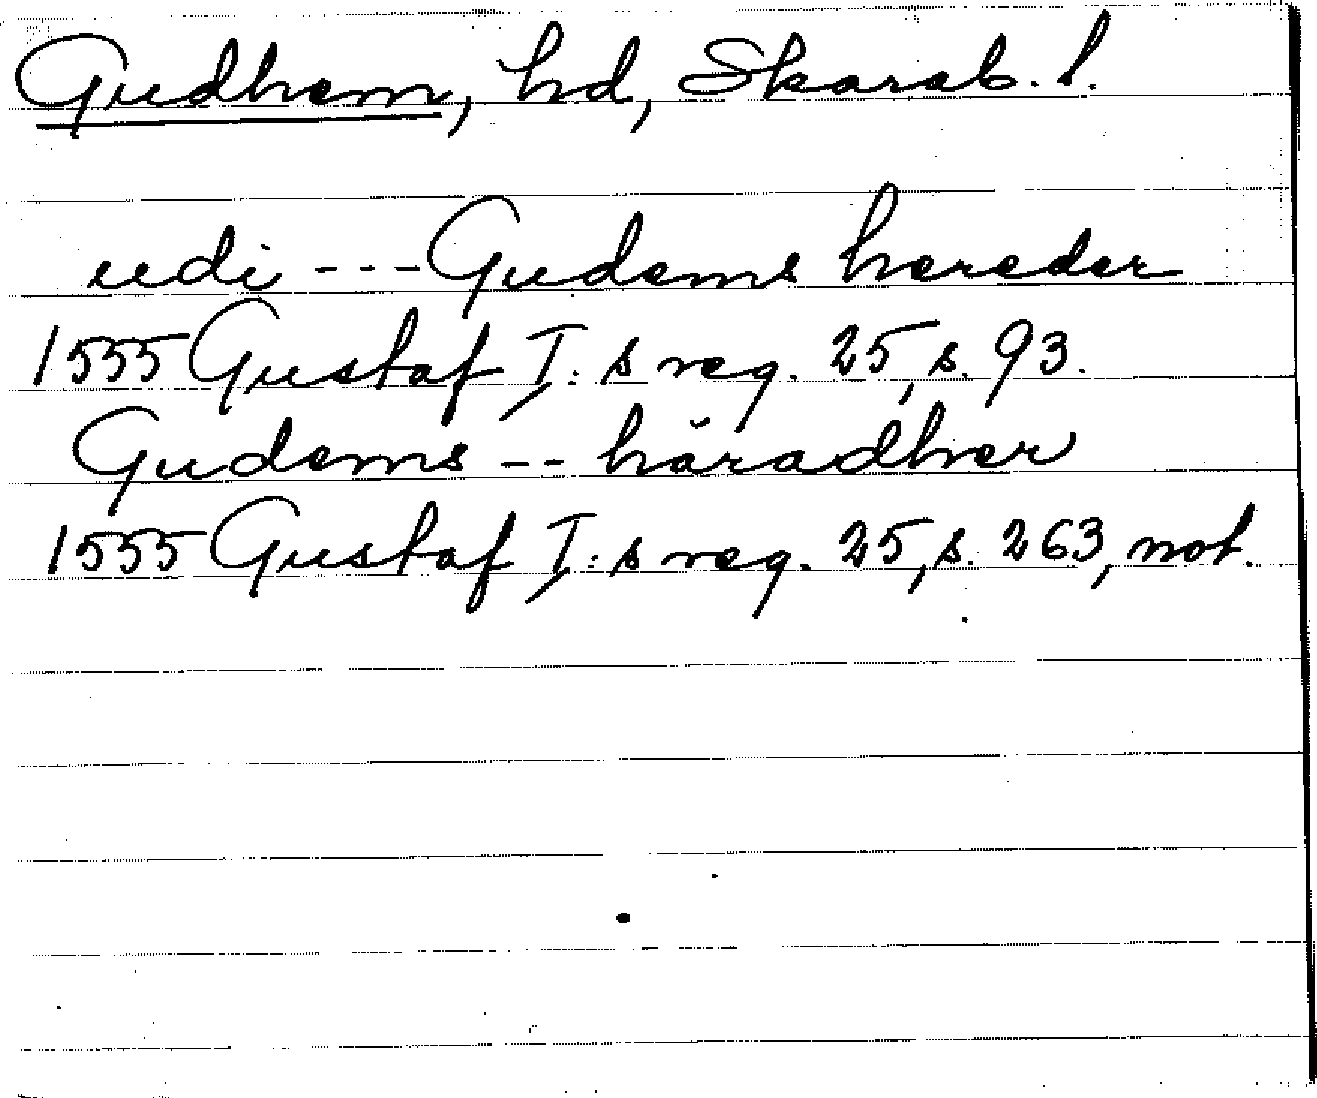 Gudhem, hd, Skarab. l.
udi --- Gudems hereder
1555 Gustaf I:s reg. 25, s. 93.
Gudems -- häradher
1555 Gustaf I:s reg. 25, s. 263, not.